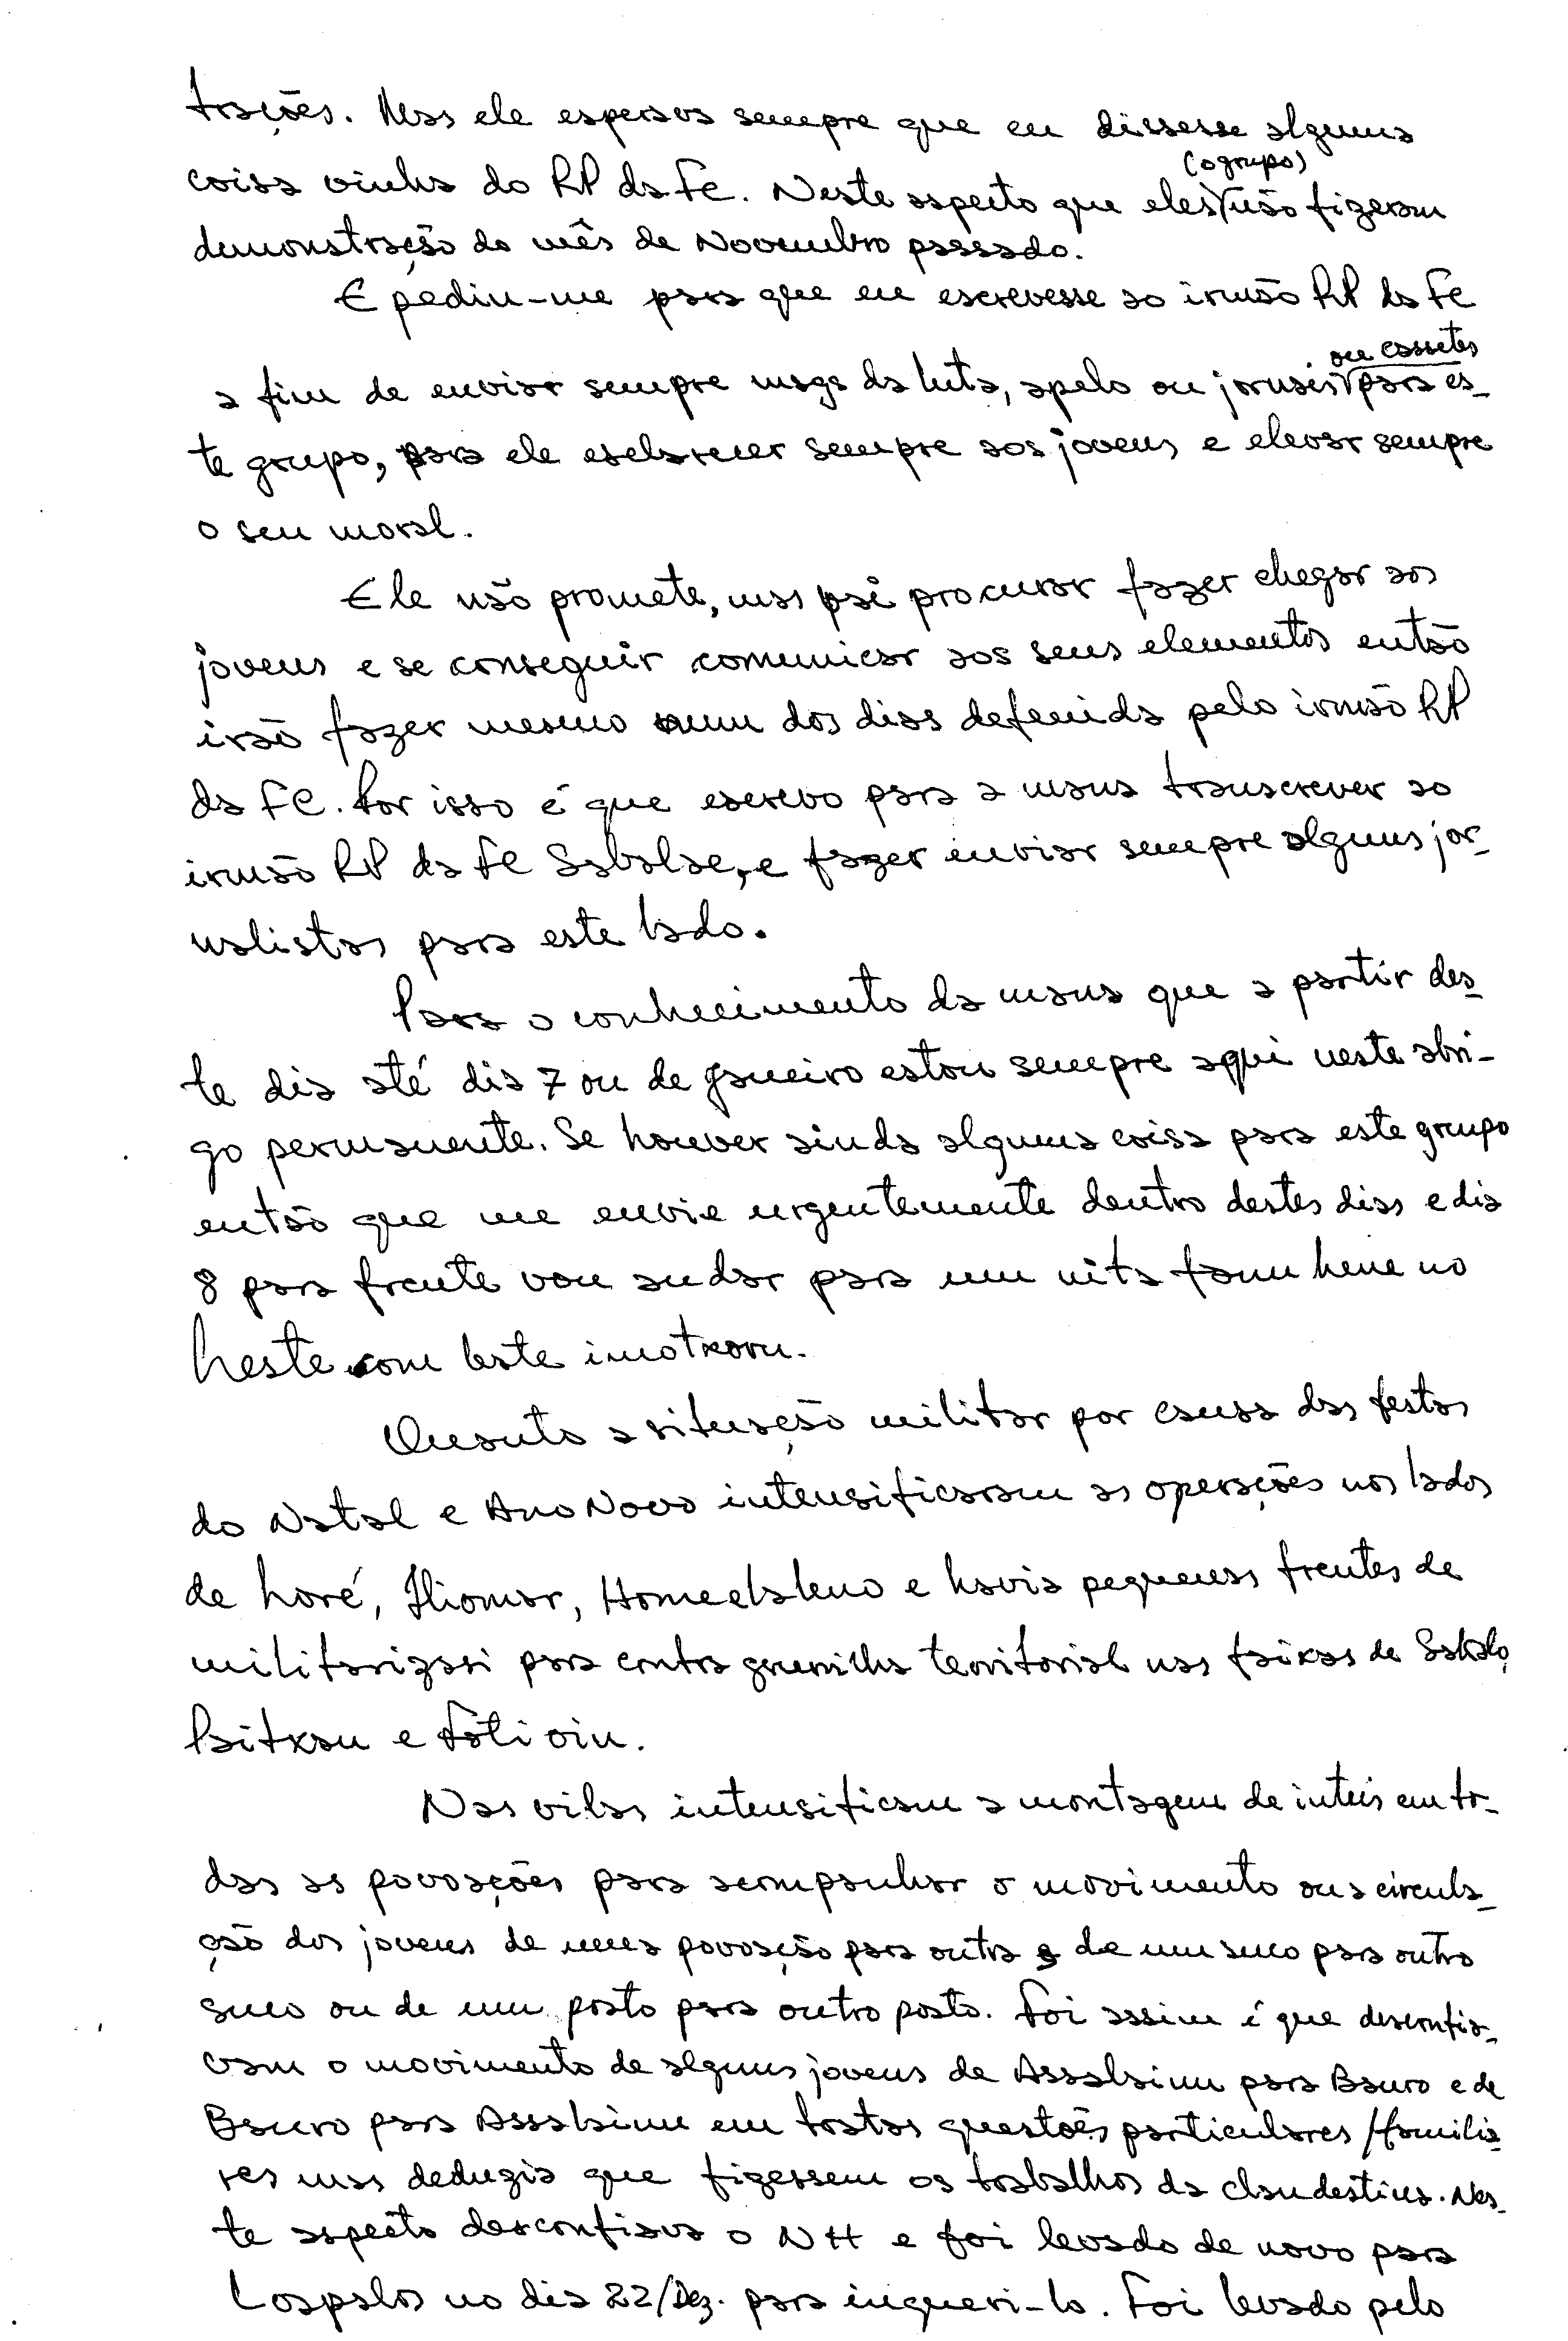 trações. Mas ele esperava sempre que eu dissesse alguma
(o grupo)
coisa vinha do RP da FC. Neste aspecto que eles não fizeram
demonstração do mês de Novembro passado.
E pediu-me para que eu escrevesse ao irmão RP da FC
ou cassetes
a fim de enviar sempre msgs da luta, apelo ou jornais para es-
te grupo, para ele esclarecer sempre aos jovens e elevar sempre
o seu moral.
Ele não promete, mas vai procurar fazer chegar aos
jovens e se conseguir comunicar aos seus elementos então
irão fazer mesmo num dos dias defenida pelo irmão RP
da FC. Por isso é que escrevo para a mana transcrever ao
irmão RP da FC Sabalae, e fazer enviar sempre alguns jor-
nalistas para este lado.
Para o conhecimento da mana que a partir des-
te dia até dia 7 ou de Janeiro estou sempre aqui neste abri-
go permanente. Se houver ainda alguma coisa para este grupo
então que me envie urgentemente dentro destes dias e dia
8 para frente vou andar para um nita fanu hene no
Leste com leste
Quanto a situação militar por causa das festas
do Natal e Ano Novo intensificaram as operações nos lados
de Loré, Iliomar, e havia pequenas frentes de
para contra guerrilha territorial nas faixas de
Paitxau e
Nas vilas intensificam a montagem de inteis em to-
das as povoações para acompanhar o movimento ou a circula-
ção dos jovens de uma povoação para outra e de um suco para outro
suco ou de um posto para outro posto. Foi assim é que desconfia-
vam o movimento de alguns jovens de Assalainu para Bauro e de
Bauro para Assalainu em tratas questões particulares /familia-
res mas deduzia que fizessem os trabalhos da clandestina. Nes-
te aspecto desconfiava o NH e foi levado de novo para
Lospalos no dia 22/Dez. para inqueri-lo. Foi levado pelo